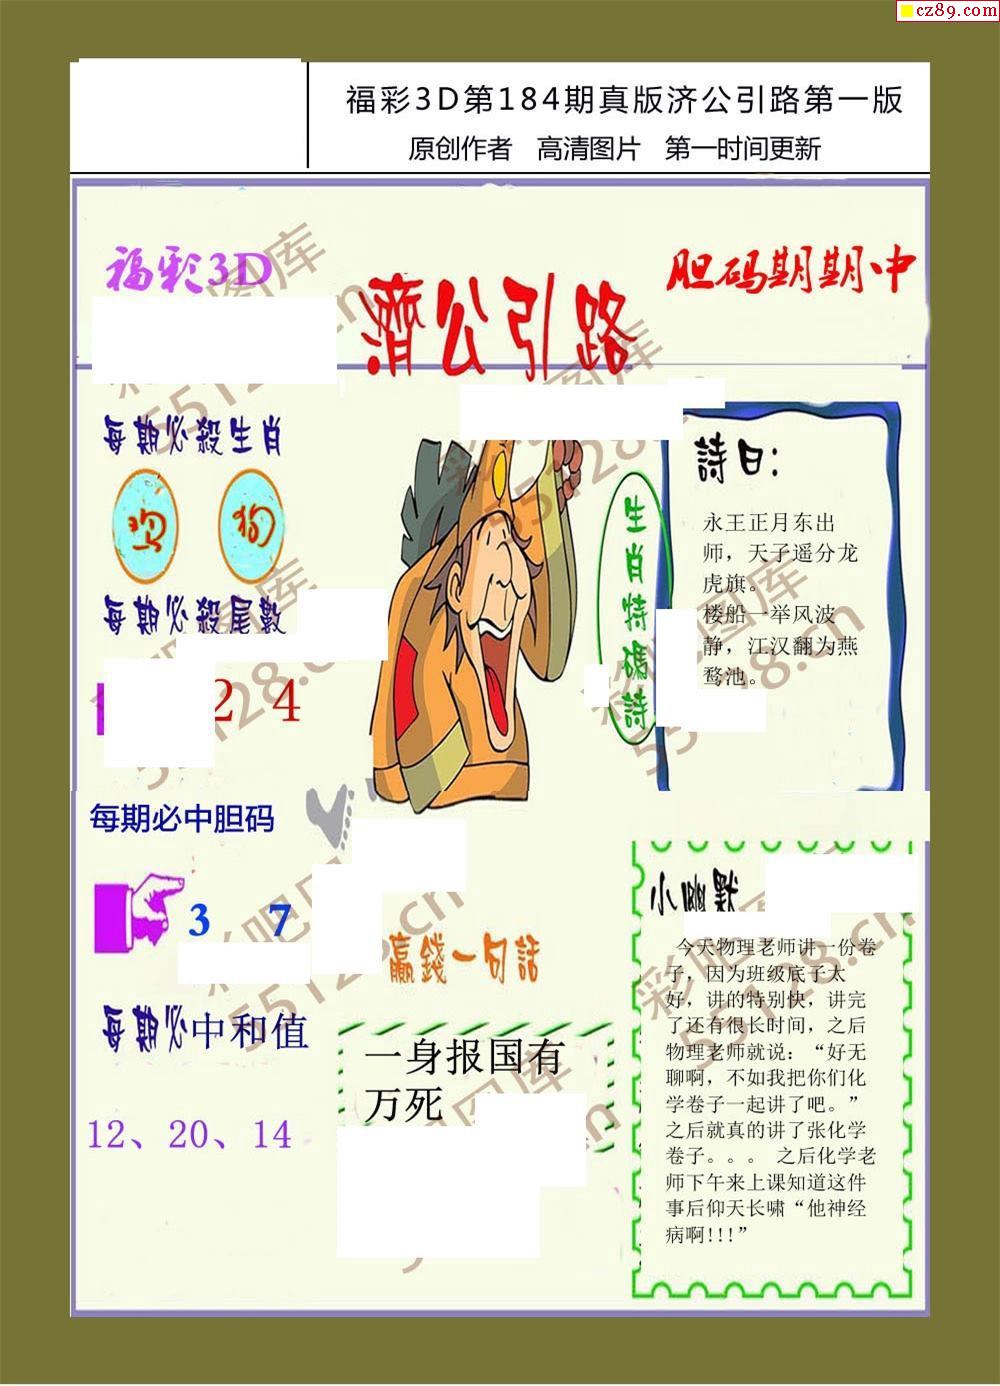 cz89.com
福彩3D第184期真版济公引路第一版
原创作者 高清图片 第一时间更新
福彩3D
胆码期期中
濟公引路
每期必殺生肖
狗
每期必殺尾數
2 4
每期必中胆码
3 7
每期必中和值
12、20、14
生肖特碼詩
詩曰:
永王正月东出
师，天子遥分龙
虎旗。
楼船一举风波
静，江汉翻为燕
鹜池。
赢錢一句話
一身报国有
万死
小幽默
今天物理老师讲一份卷
子，因为班级底子太
好，讲的特别快，讲完
了还有很长时间，之后
物理老师就说：“好无
聊啊，不如我把你们化
学卷子一起讲了吧。”
之后就真的讲了张化学
卷子。。。 之后化学老
师下午来上课知道这件
事后仰天长啸“他神经
病啊!!!”
彩吧图库
55128.cn